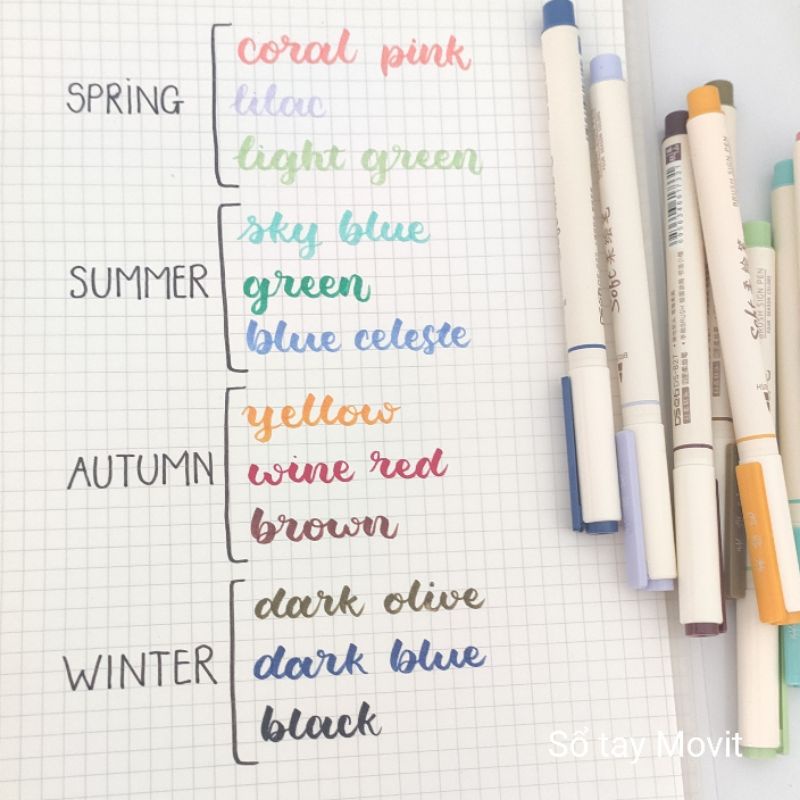 SPRING
coral pink
lilac
light green
SUMMER
sky blue
green
blue celeste
AUTUMN
yellow
wine red
brown
WINTER
dark olive
dark blue
black
BRUSH SIGN PEN
BRUSH SIGN PEN
Sổ tay Movit